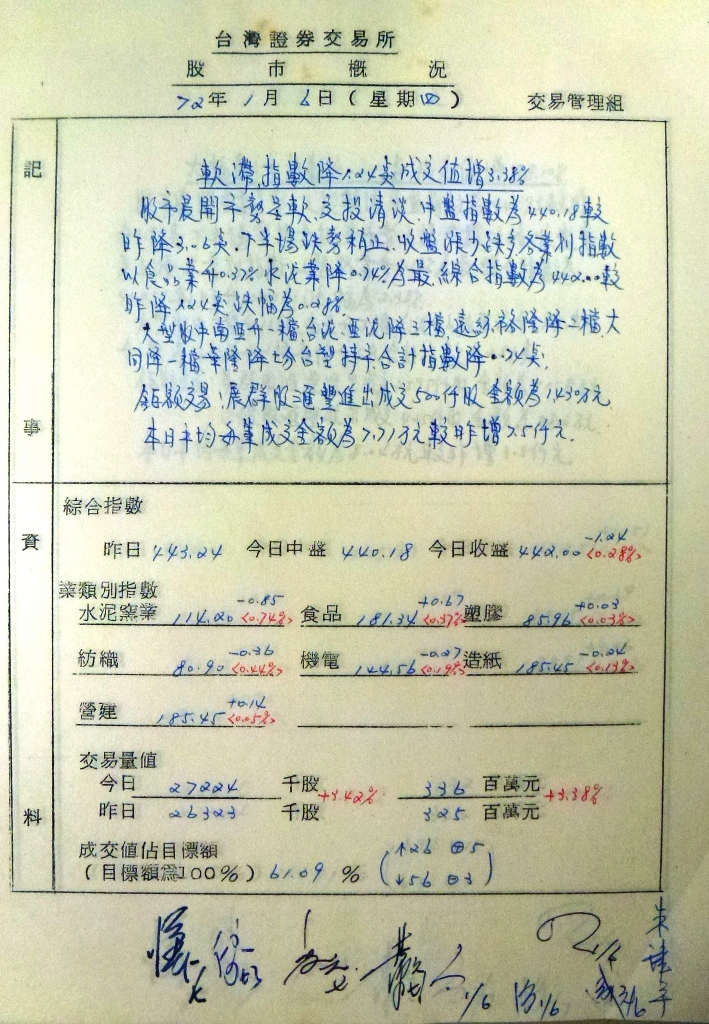 台灣證券交易所
股市概況
72年1月6日（星期四） 交易管理組
記
軟滯,指數降1.24點成交值增3.38%
股市晨開市勢呈軟,交投清淡,中盤指數為440.18較
昨降3.06點.下半場跌勢稍止.收盤漲少跌多各業別指數
以食品業升0.37%水泥業降0.74%為最.綜合指數為442.00較
昨降1.24點跌幅為0.28%.
大型股中南亞升一檔,台泥.亞泥降三檔,遠紡.裕隆降二檔,大
同降一檔華隆降 台塑持平合計指數降0.74點.
鉅額交易:展群股滙豐進出成交500仟股金額為1430万元.
本日平均每筆成交金額為7.71万元較昨增2.5仟元.
事
資
綜合指數
-1.24
昨日 443.24 今日中盤 440.18 今日收盤 442.00 <0.28%>
業類別指數
-0.85 +0.67 +0.03
水泥窯業 114.20 <0.74%> 食品 181.34 <0.37%> 塑膠 85.96 <0.03%>
-0.36 -0.27 -0.24
紡織 80.90 <0.44%> 機電 144.56 <0.19%> 造紙 185.45 <0.13%>
+0.14
營建 185.45 <0.05%>
交易量值
今日 27224 千股 +3.42% 336 百萬元 +3.38%
昨日 26323 千股 325 百萬元
料
成交值佔目標額 ↑26 ⊕5
(目標額為100%) 61.09 % ↓56 ⊖3
1/6 1/6